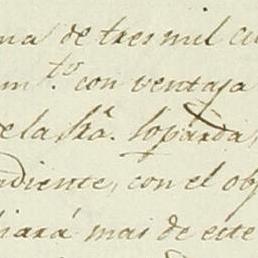 ma de tres mil cu
m.to con ventaja
de la Sra. Lopa
ndiente, con el ob
iará mas de este